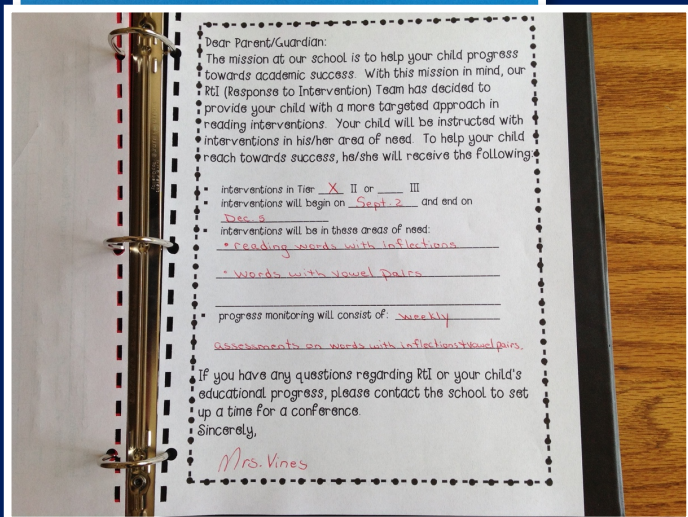 Dear Parent/Guardian:
The mission at our school is to help your child progress
towards academic success. With this mission in mind, our
RtI (Response to Intervention) Team has decided to
provide your child with a more targeted approach in
reading interventions. Your child will be instructed with
interventions in his/her area of need. To help your child
reach towards success, he/she will receive the following:
interventions in Tier X II or ___ III
interventions will begin on Sept. 2 and end on
Dec. 5
interventions will be in these areas of need:
• reading words with inflections
• words with vowel pairs
progress monitoring will consist of: weekly
assessments on words with inflections + vowel pairs.
If you have any questions regarding RtI or your child's
educational progress, please contact the school to set
up a time for a conference.
Sincerely,
Mrs. Vines